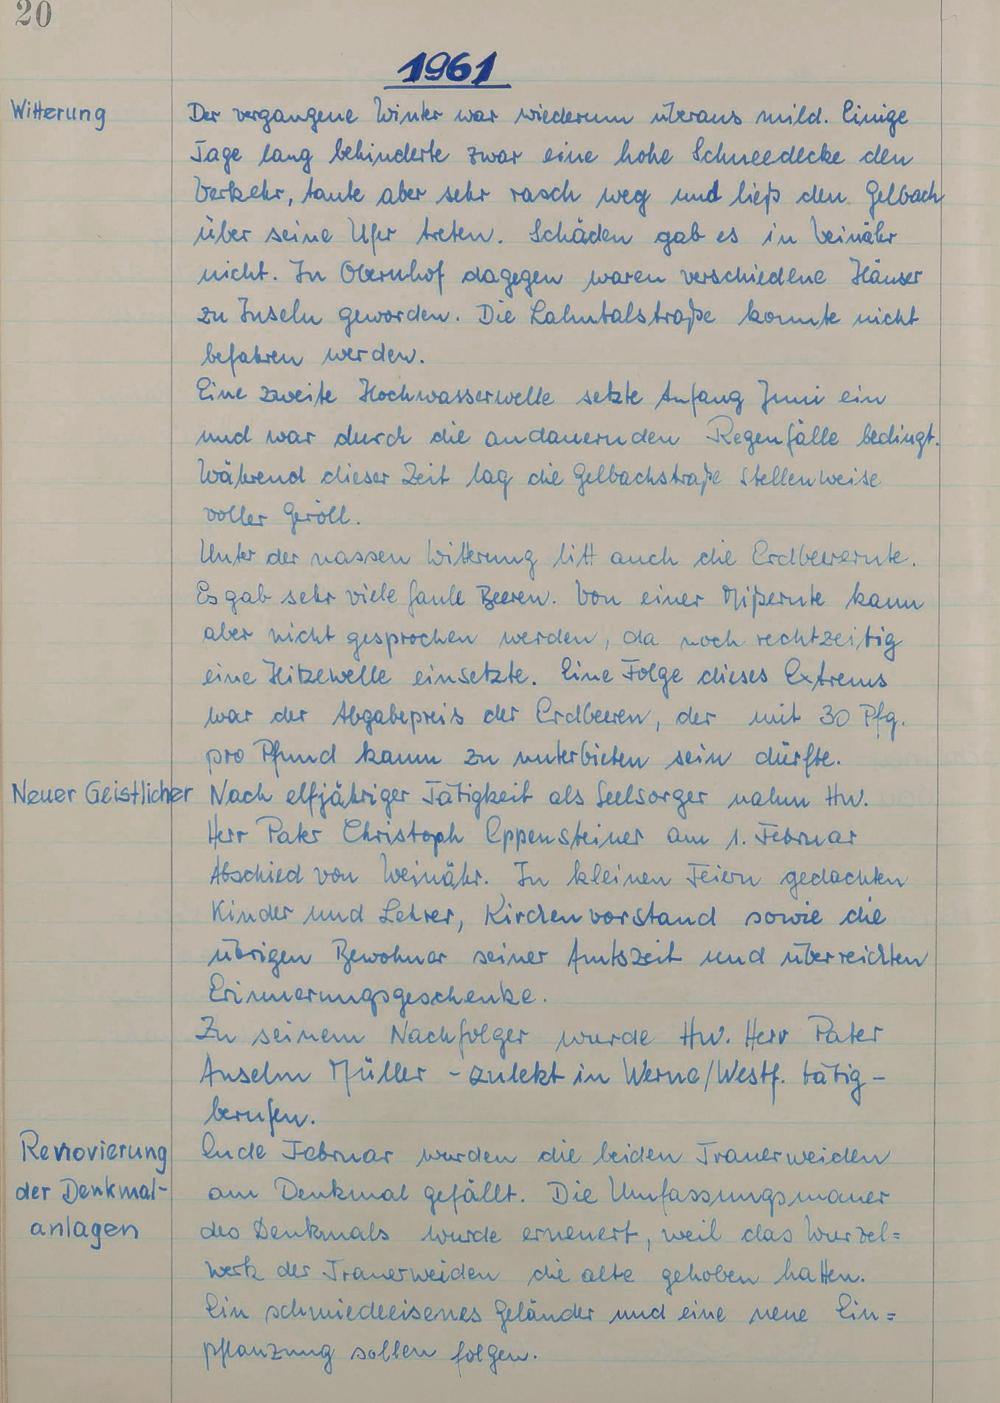 20
1961
Witterung
Der vergangene Winter war wiederum überaus mild. Einige
Tage lang behinderte zwar eine hohe Schneedecke den
Verkehr, taute aber sehr rasch weg und ließ den Gelbach
über seine Ufer treten. Schäden gab es in Weinähr
nicht. In Obernhof dagegen waren verschiedene Häuser
zu Inseln geworden. Die Lahntalstraße konnte nicht
befahren werden.
Eine zweite Hochwasserwelle setzte Anfang Juni ein
und war durch die andauernden Regenfälle bedingt.
Während dieser Zeit lag die Gelbachstraße stellenweise
voller Geröll.
Unter der nassen Witterung litt auch die Erdbeerernte.
Es gab sehr viele faule Beeren. Von einer Mißernte kann
aber nicht gesprochen werden, da noch rechtzeitig
eine Hitzewelle einsetzte. Eine Folge dieses Extrems
war der Abgabepreis der Erdbeeren, der mit 30 Pfg.
pro Pfund kaum zu unterbieten sein dürfte.
Neuer Geistlicher
Nach elfjähriger Tätigkeit als Seelsorger nahm Hw.
Herr Pater Christoph Eppensteiner am 1. Februar
Abschied von Weinähr. In kleinen Feiern gedachten
Kinder und Lehrer, Kirchenvorstand sowie die
übrigen Bewohner seiner Amtszeit und überreichten
Erinnerungsgeschenke.
Zu seinem Nachfolger wurde Hw. Herr Pater
Anselm Müller - zuletzt in Werne/Westf. tätig -
berufen.
Renovierung
der Denkmal-
anlagen
Ende Februar wurden die beiden Trauerweiden
am Denkmal gefällt. Die Umfassungsmauer
des Denkmals wurde erneuert, weil das Wurzel=
werk der Trauerweiden die alte gehoben hatten.
Ein schmiedeeisenes Geländer und eine neue Ein=
pflanzung sollen folgen.